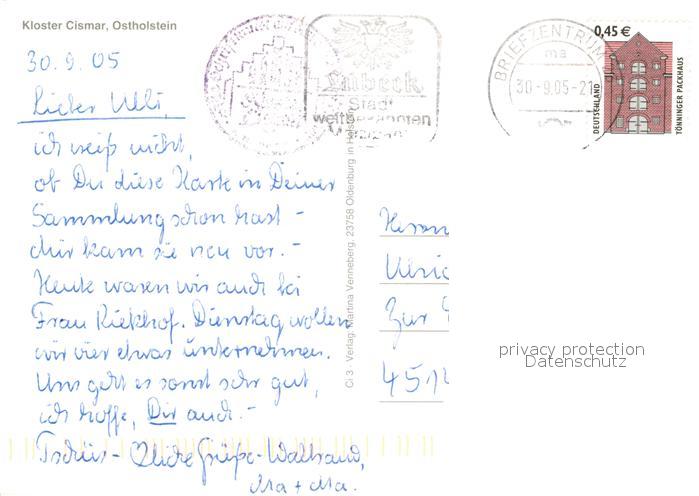 Kloster Cismar, Ostholstein
30.9.05
Lieber Ulli,
ich weiß nicht,
ob Du diese Karte in Deiner
Sammlung schon hast -
mir kam sie neu vor. -
Heute waren wir auch bei
Frau Kiekhof. Dienstag wollen
wir vier etwas unternehmen.
Uns geht es sonst sehr gut,
ich hoffe, Dir auch. -
Tschüs - Grüße -
Ma + Ma.
Lübeck
Stadt
BRIEFZENTRUM
ma
30-9.05-21
0,45 €
DEUTSCHLAND
TÖNNINGER PACKHAUS
Ci 3 - Verlag: Martina Venneberg, 23758 Oldenburg in Holst
Herrn
Ulric
Zur
4514
privacy protection
Datenschutz